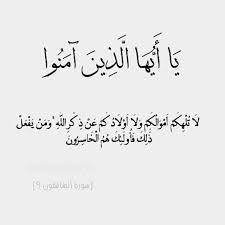 يَا أَيُّهَا الَّذِينَ آمَنُوا
لَا تُلْهِكُمْ أَمْوَالُكُمْ وَلَا أَوْلَادُكُمْ عَنْ ذِكْرِ اللَّهِ وَمَنْ يَفْعَلْ
ذَلِكَ فَأُولَئِكَ هُمُ الْخَاسِرُونَ
[سورة المنافقون ٩]